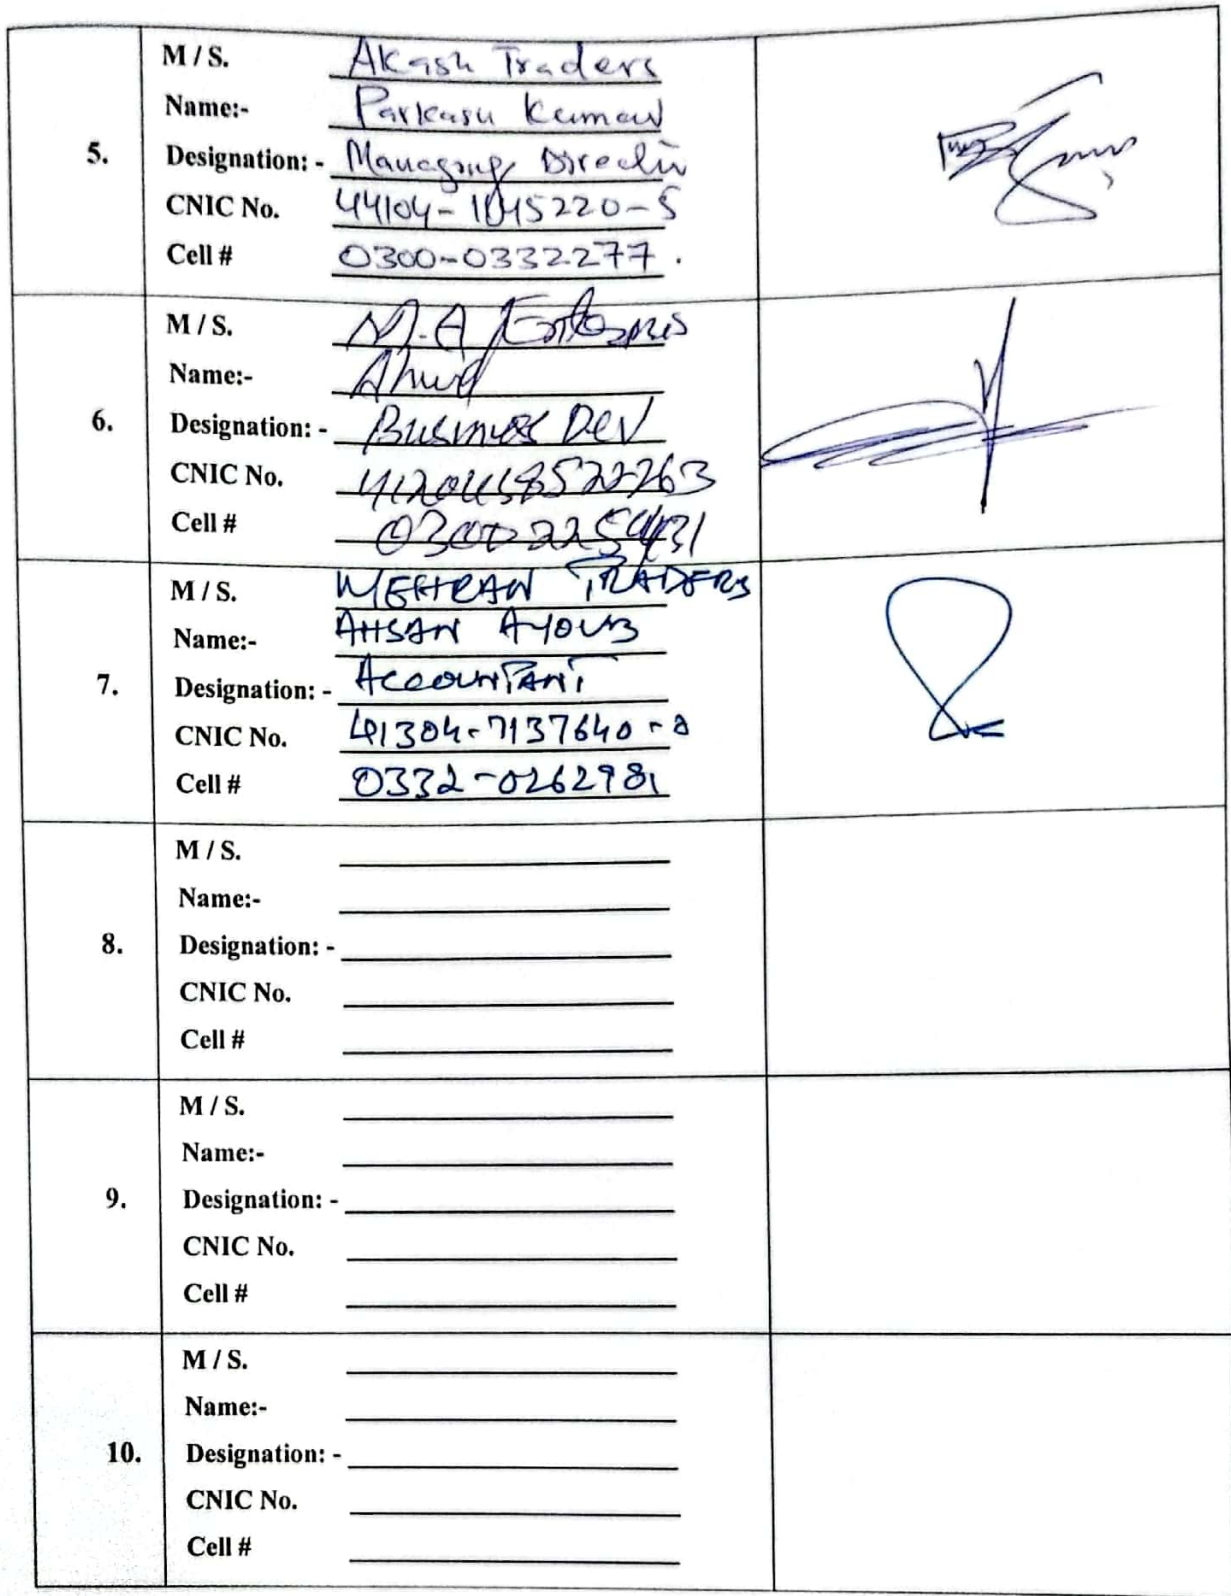 5.
M / S. Akash Traders
Name:- Parkash Kumar
Designation: - Managing Director
CNIC No. 44104-1045220-5
Cell # 0300-0332277.
6.
M / S. M.A Enterpris
Name:-
Designation: - Business Dev
CNIC No.
Cell # 03002259431
7.
M / S. MEHRAN TRADERS
Name:- AHSAN AYOUB
Designation: - ACCOUNTANT
CNIC No. 41304-7137640-
Cell # 0332-0262981
8.
M / S.
Name:-
Designation: -
CNIC No.
Cell #
9.
M / S.
Name:-
Designation: -
CNIC No.
Cell #
10.
M / S.
Name:-
Designation: -
CNIC No.
Cell #